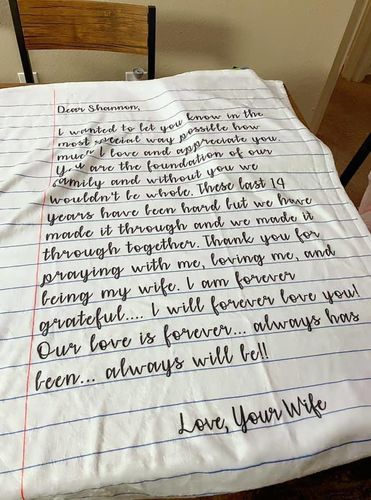 Dear Shannon,
I wanted to let you know in the
most special way possible how
much I love and appreciate you.
You are the foundation of our
family and without you we
wouldn't be whole. These last 14
years have been hard but we have
made it through and we made it
through together. Thank you for
praying with me, loving me, and
being my wife. I am forever
grateful.... I will forever love you!
Our love is forever... always has
been... always will be!!
Love, Your Wife